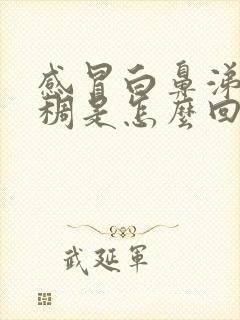 感冒白鼻涕
稠是怎麼回
武延軍